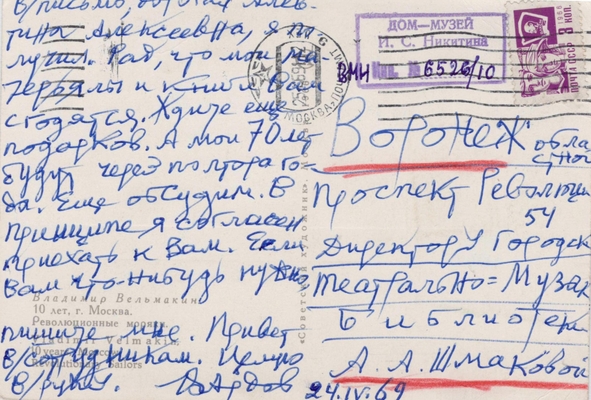 В/письмо, дорогая Алев-
тина Алексеевна, я по-
лучил. Рад, что мои ма-
териалы и книги Вам
сгодятся. Ждите еще
подарков. А мои 70 лет
будут через полтора го-
да. Еще обсудим. В
принципе я согласен
приехать к Вам. Если
Вам что-нибудь нужно
Владимир Вельмакин
10 лет, г. Москва.
Революционные моряки.
Vladimir Velmakin
10 years, Moscow
Revolutionary Sailors
пишите мне. Привет
В/сотрудникам. Целую
В/руку.
«Советский художник». М
ДОМ—МУЗЕЙ
И. С. Никитина
Инв. № 6526/10
ВМН
МОСКВА
ПОЧТА СССР
Воронеж областной
Проспект Революции
54
Директору Городск
Театрально=Музык
Библиотеки
А. А. Шмаковой
24.IV.69